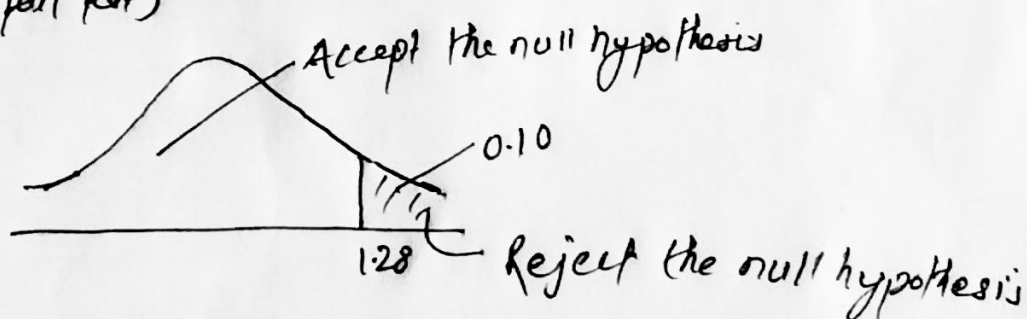 Accept the null hypothesis
0.10
1.28
Reject the null hypothesis